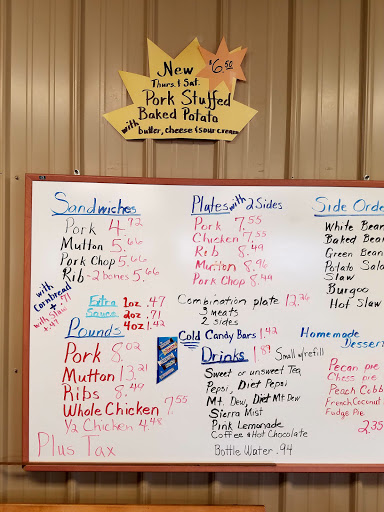 New
Thurs. & Sat.
Pork Stuffed
Baked Potato
with butter, cheese & sour cream
$6.50
Sandwiches
Pork 4.72
Mutton 5.66
Pork Chop 5.66
Rib-2 bones 5.66
with
Cornbread
+ .71
with Slaw
+.47
Extra 1oz .47
Sauce 2oz .71
4oz 1.42
Pounds
Pork 8.02
Mutton 13.21
Ribs 8.49
Whole Chicken 7.55
1/2 Chicken 4.48
Plus Tax
Plates with 2 Sides
Pork 7.55
Chicken 7.55
Rib 8.49
Mutton 8.96
Pork Chop 8.49
Combination plate 12.26
3 meats
2 sides
Cold Candy Bars 1.42
Drinks 1.89 Small w/refill
Sweet or unsweet Tea
Pepsi, Diet Pepsi
Mt. Dew, Diet Mt Dew
Sierra Mist
Pink Lemonade
Coffee & Hot Chocolate
Bottle Water .94
Side Orde
White Bean
Baked Bean
Green Bean
Potato Sala
Slaw
Burgoo
Hot Slaw
Homemade
Desser
Pecan pie
Chess pie
Peach Cobb
French Coconut
Fudge Pie
2.35